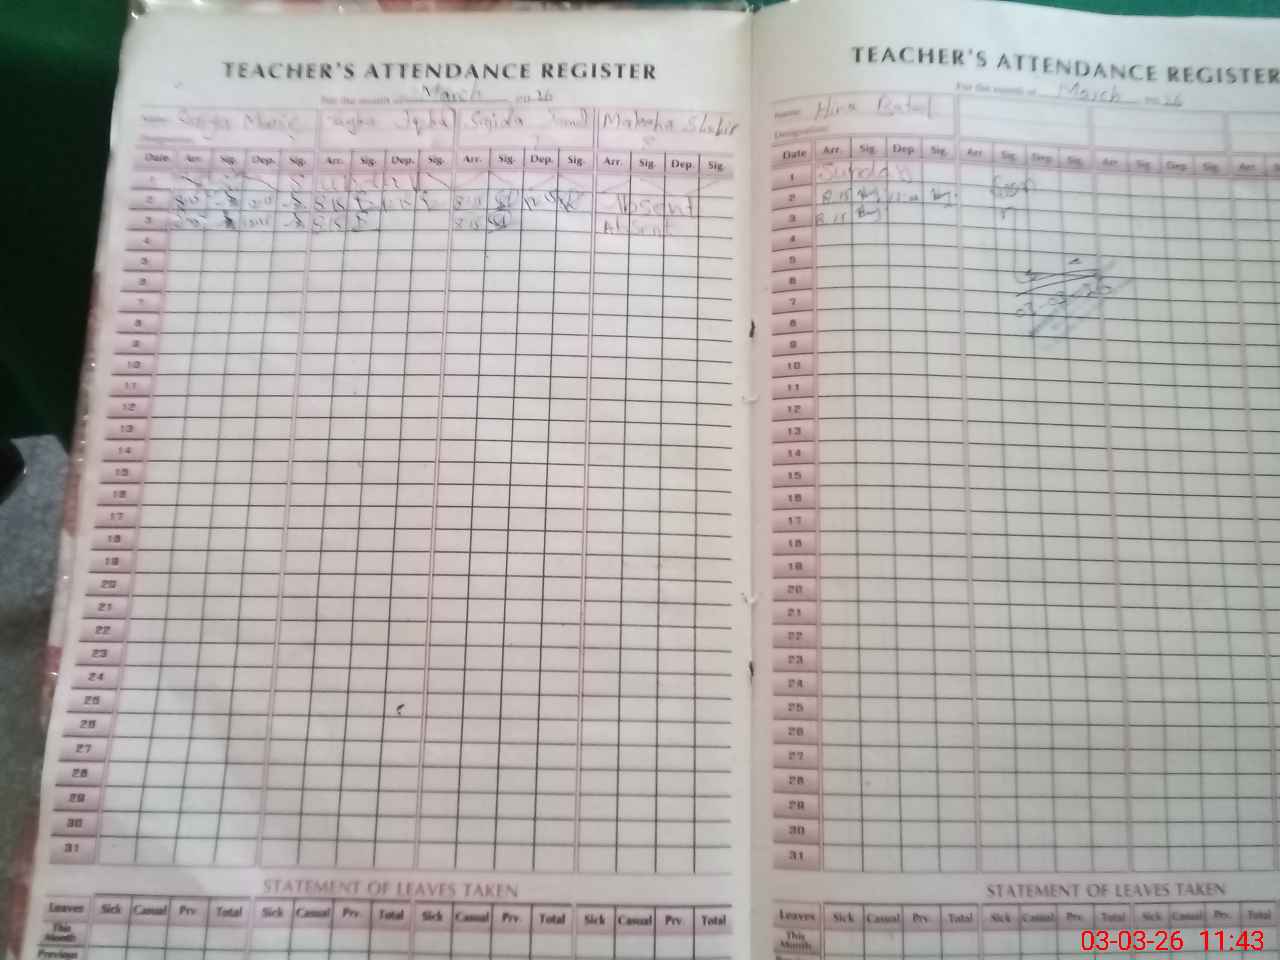 TEACHER'S ATTENDANCE REGISTER
For the month of March 2026
Name: Iqbal Sajida Maleeha Shabir
Designation:
Date Arr. Sig. Dep. Sig. Arr. Sig. Dep. Sig. Arr. Sig. Dep. Sig. Arr. Sig. Dep. Sig.
1
2 8:15 8:15 8:15 Absent
3 8:15 8:15 Absent
4
5
6
7
8
9
10
11
12
13
14
15
16
17
18
19
20
21
22
23
24
25
26
27
28
29
30
31
STATEMENT OF LEAVES TAKEN
Leaves Sick Casual Prv. Total Sick Casual Prv. Total Sick Casual Prv. Total Sick Casual Prv. Total
This Month
Previous
TEACHER'S ATTENDANCE REGISTER
For the month of March 2026
Name: Hira Batool
Designation:
Date Arr. Sig. Dep. Sig. Arr. Sig. Dep. Sig. Arr. Sig. Dep. Sig. Arr.
1 Sunday
2 8:15
3 8:15
4
5
6
7
8
9
10
11
12
13
14
15
16
17
18
19
20
21
22
23
24
25
26
27
28
29
30
31
03-03-26
STATEMENT OF LEAVES TAKEN
Leaves Sick Casual Prv. Total Sick Casual Prv. Total Sick Casual Prv.
This Month
03-03-26 11:43